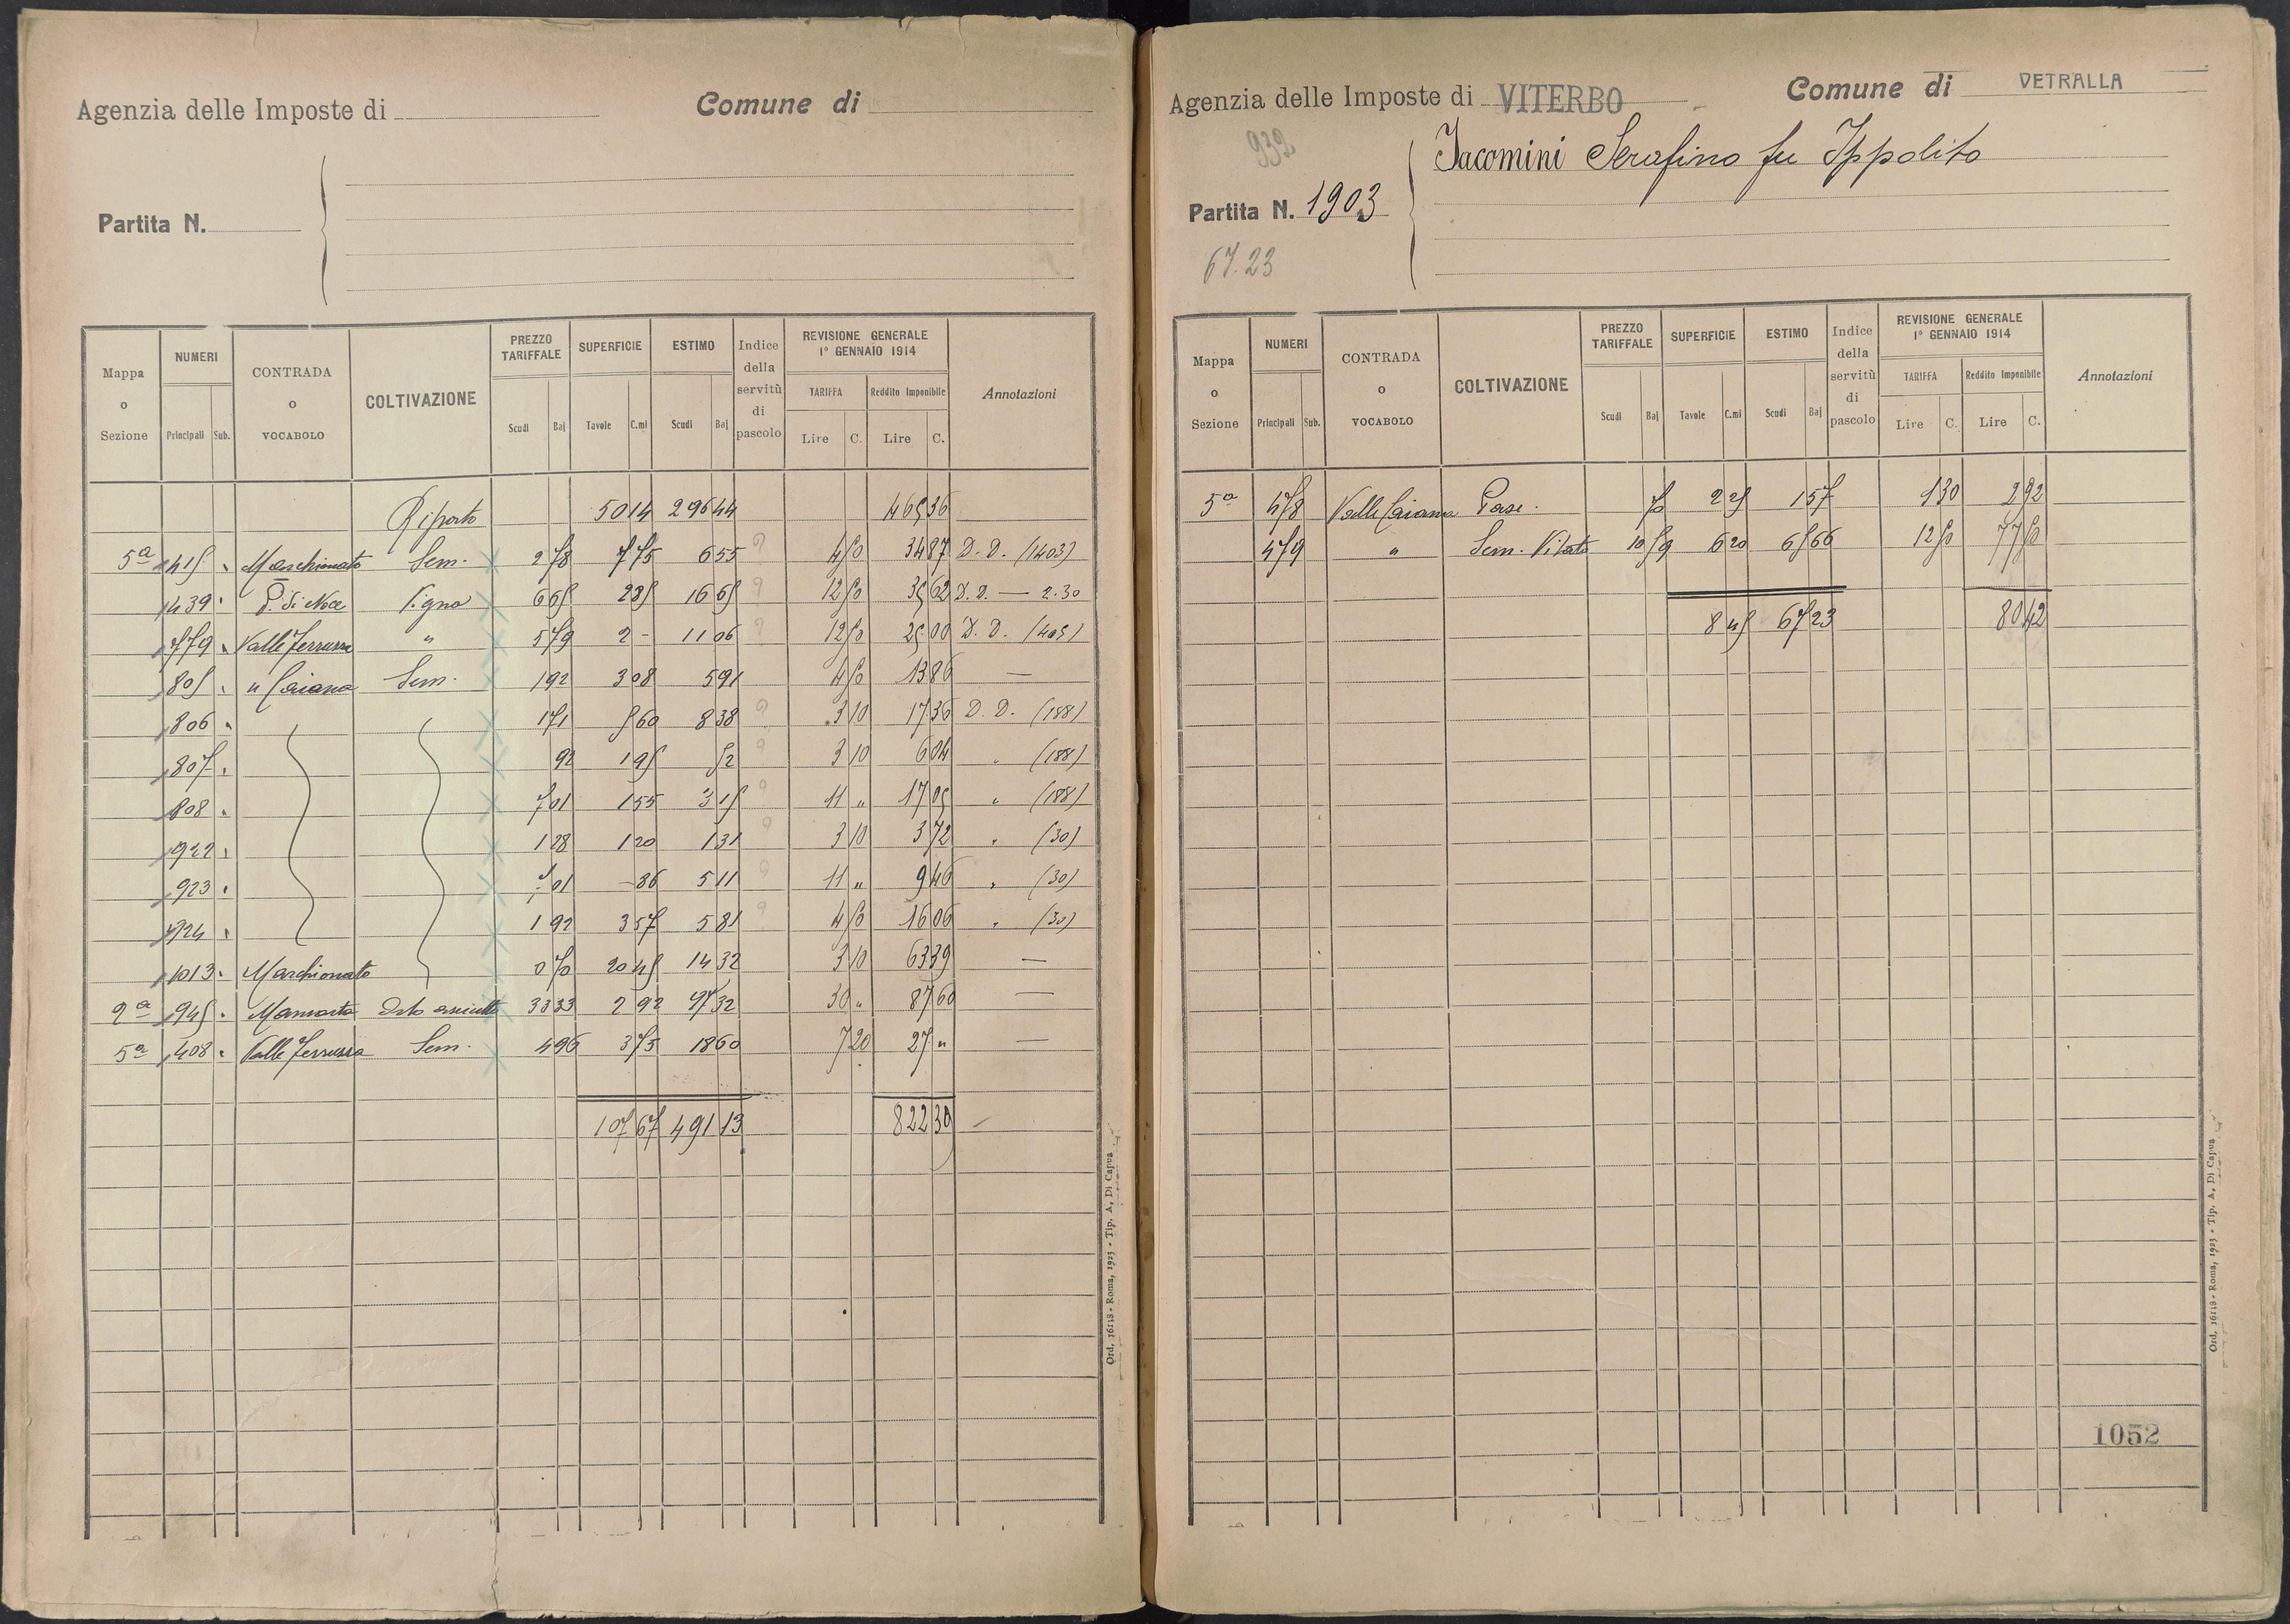 Agenzia delle Imposte di
Comune di
Partita N.
Mappa o Sezione
NUMERI
Principali Sub.
CONTRADA o VOCABOLO
COLTIVAZIONE
PREZZO TARIFFALE
Scudi Baj
SUPERFICIE
Tavole C.mi
ESTIMO
Scudi Baj
Indice della servitù di pascolo
REVISIONE GENERALE 1° GENNAIO 1914
TARIFFA
Lire C.
Reddito Imponibile
Lire C.
Annotazioni
Riporto 50 14 296 44 465 36
5a Marchionato Sem. 2 78 7 75 6 55 4 50 34 87 D. D. (1403)
1439 P. di Noce Vigna 6 65 2 85 16 65 12 50 35 62 D. D. — 2.30
779 Valle Ferrusa " 5 79 2 - 11 06 12 50 25 00 D. D. (405)
805 " Caiana Sem. 1 92 3 08 5 91 4 50 13 86 —
806 1 71 5 60 8 38 3 10 17 36 D. D. (188)
807 92 1 95 52 3 10 6 04 " (188)
808 7 01 1 55 3 15 11 " 17 05 " (188)
922 1 28 1 20 1 31 3 10 3 72 " (30)
923 7 01 - 86 5 11 11 " 9 46 " (30)
924 1 92 3 57 5 81 4 50 16 06 " (30)
1013 Marchionato 0 70 20 45 14 32 3 10 63 39 —
2a 945 Orto asciutto 33 33 2 92 97 32 30 " 87 60 —
5a 408 Valle Ferrusa Sem. 4 96 3 75 18 60 7 20 27 " —
107 67 491 13 822 30
Ord. 16118 - Roma, 1923 - Tip. A. Di Capua
Agenzia delle Imposte di VITERBO
Comune di VETRALLA
932
Partita N. 1903
Iacomini Serafino fu Ippolito
67.23
Mappa o Sezione
NUMERI
Principali Sub.
CONTRADA o VOCABOLO
COLTIVAZIONE
PREZZO TARIFFALE
Scudi Baj
SUPERFICIE
Tavole C.mi
ESTIMO
Scudi Baj
Indice della servitù di pascolo
REVISIONE GENERALE 1° GENNAIO 1914
TARIFFA
Lire C.
Reddito Imponibile
Lire C.
Annotazioni
5a 478 Valle Caiana Pasc. 70 2 25 1 57 1 30 2 92
479 " Sem. Vitato 10 59 6 20 65 66 12 50 77 50
8 45 67 23 80 42
1052
Ord. 16118 - Roma, 1923 - Tip. A. Di Capua